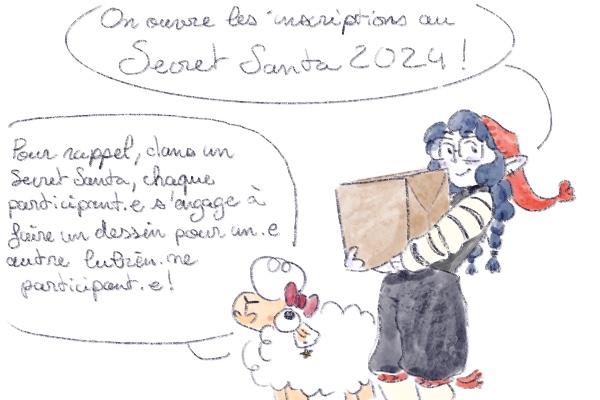 On ouvre les inscriptions au
Secret Santa 2024 !
Pour rappel, dans un
Secret Santa, chaque
participant.e s'engage à
faire un dessin pour un.e
autre lutin.ne
participant.e !